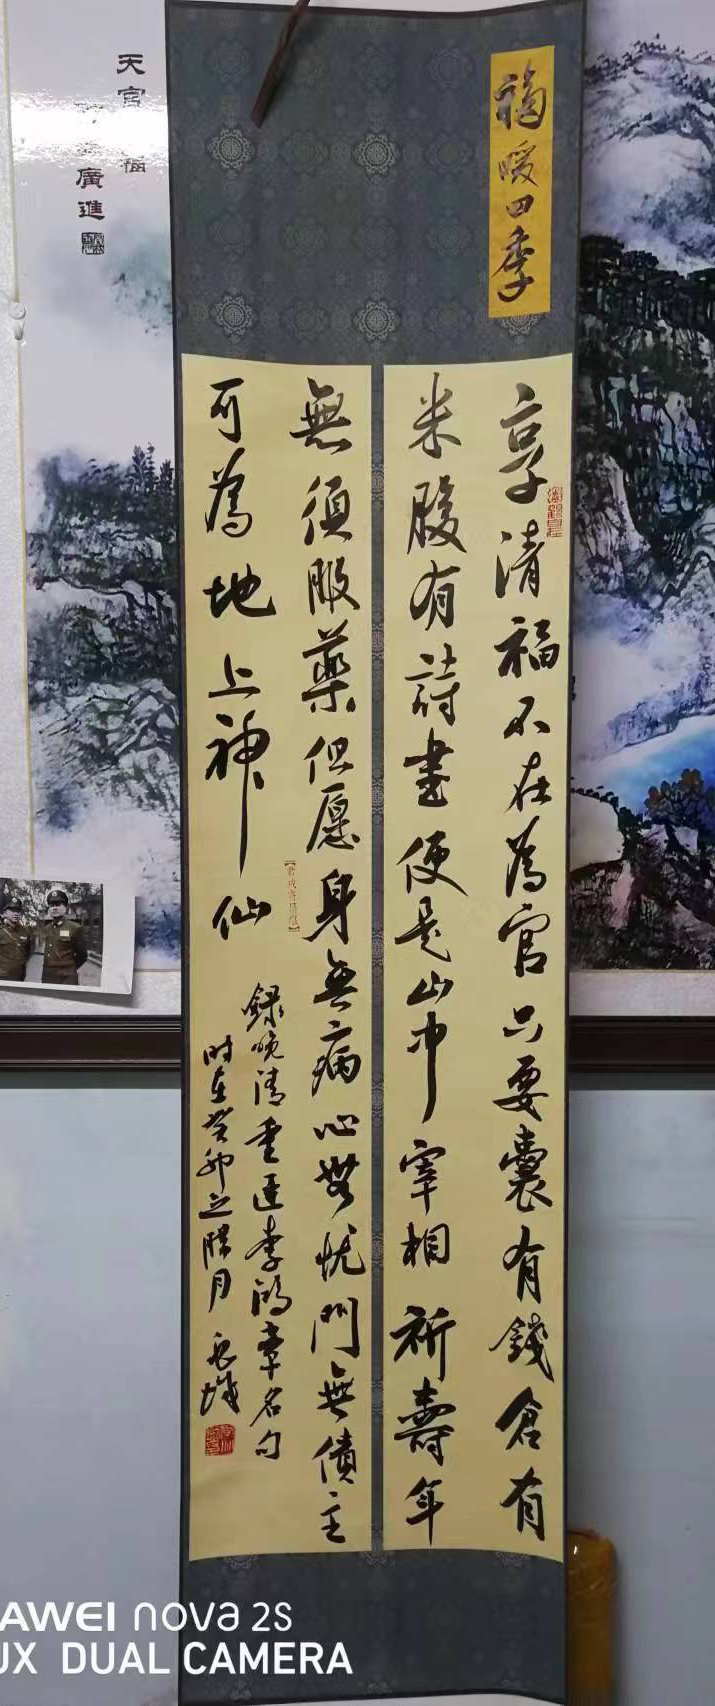 福暖四季
享清福不在為官只要囊有錢倉有
米腹有詩書便是山中宰相祈壽年
無須服藥但愿身無病心無忧門無債主
可為地上神仙
錄晚清重臣李鴻章名句
時在癸卯之臘月
天官
廣進
AWEI nova 2s
UX DUAL CAMERA